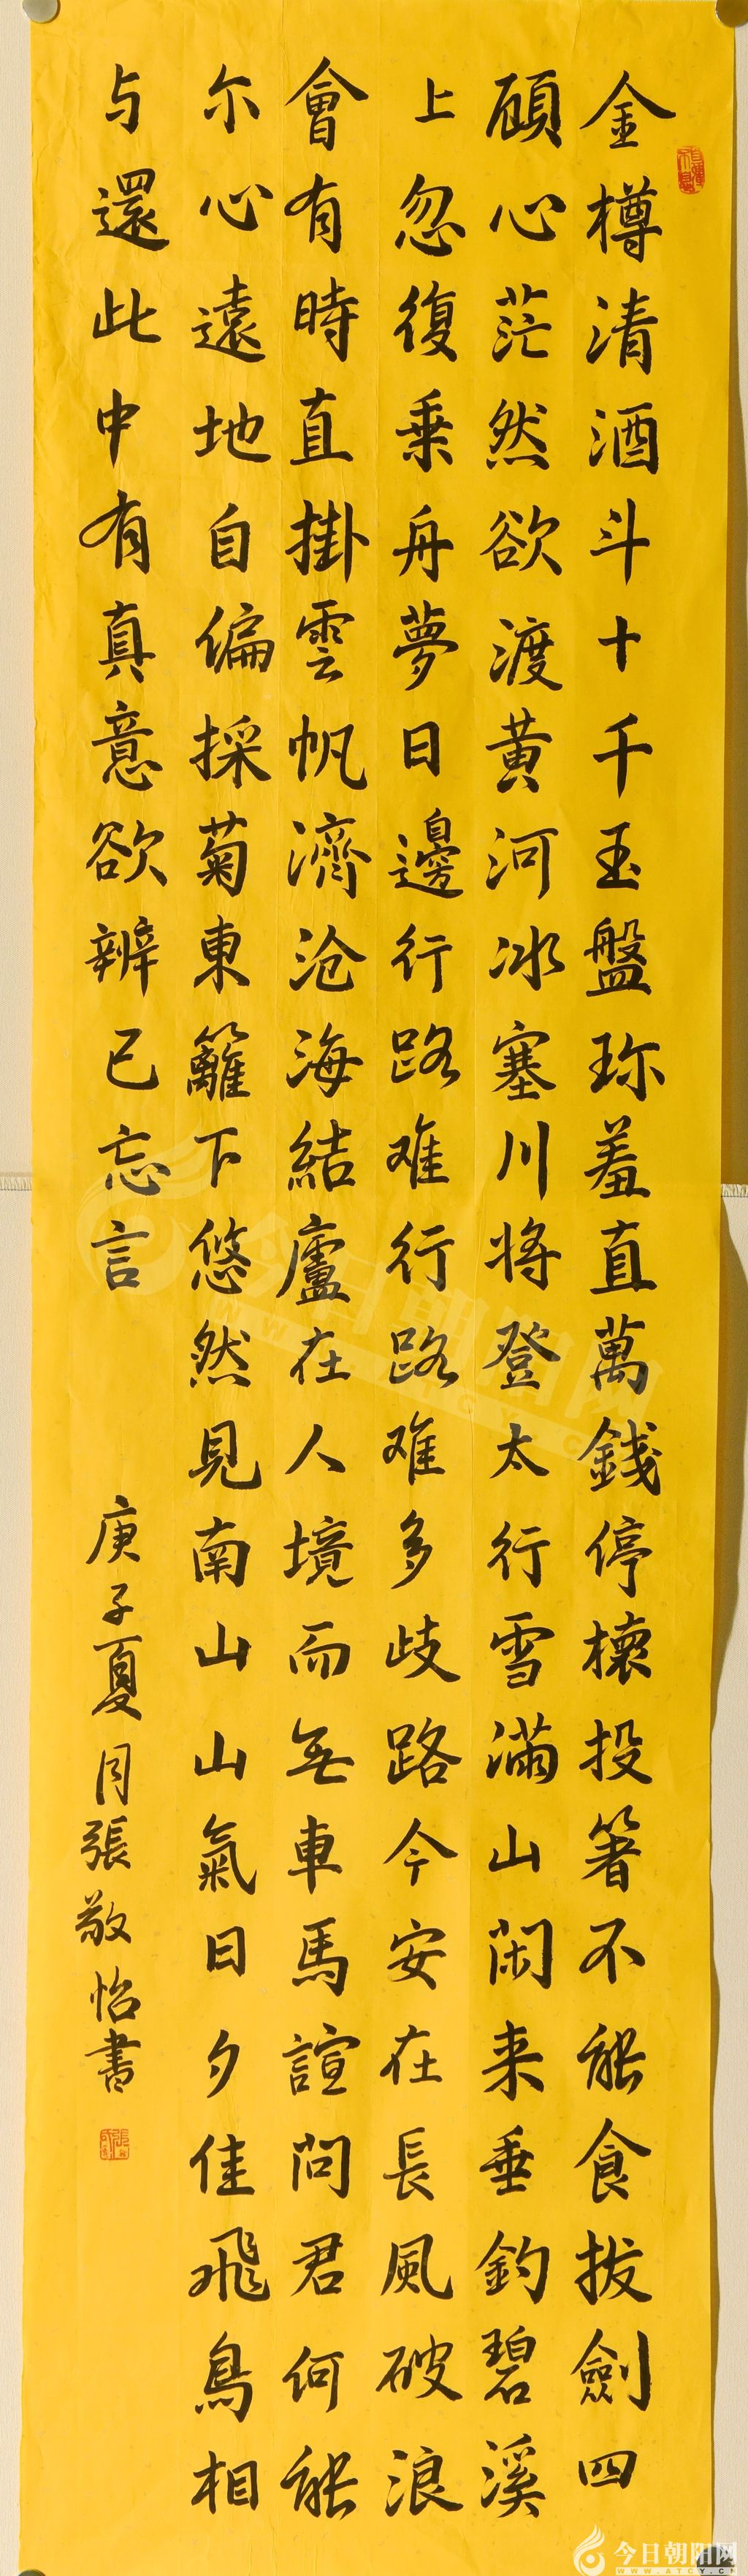 金樽清酒斗十千玉盤珎羞直萬錢停櫰投箸不能食拔劍四
顧心茫然欲渡黄河冰塞川将登太行雪滿山閑来垂釣碧溪
上忽復乗舟夢日邊行路难行路难多歧路今安在長風破浪
會有時直掛雲帆濟沧海結廬在人境而無車馬諠問君何能
尓心遠地自偏採菊東籬下悠然見南山山氣日夕佳飛鳥相
与還此中有真意欲辨已忘言
庚子夏月張敬怡書
今日朝阳网
今日朝阳网